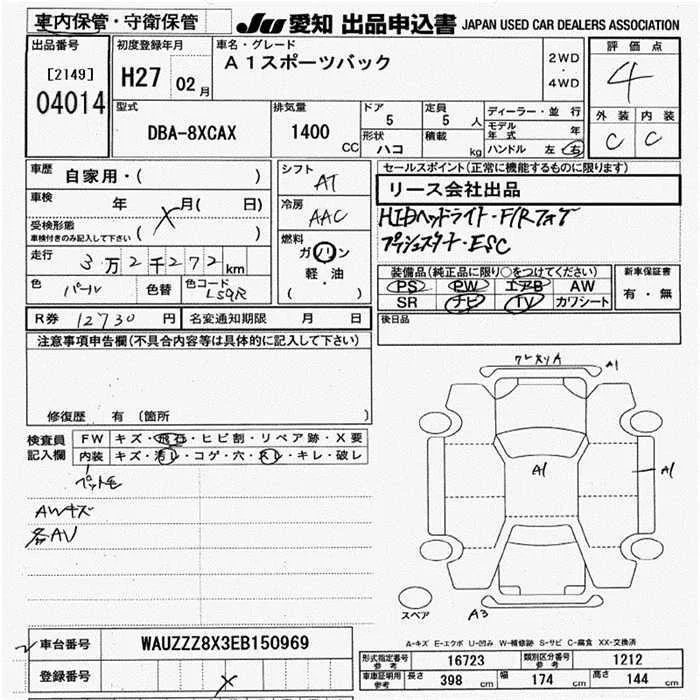 車内保管・守衛保管
JU 愛知 出品申込書 JAPAN USED CAR DEALERS ASSOCIATION
出品番号
[2149]
04014
初度登録年月
H27 02月
車名・グレード
A1スポーツバック
2WD
・
4WD
評価点
4
外装 内装
C C
型式
DBA-8XCAX
排気量
1400
CC
ドア
5
定員
5 人
形状
ハコ
積載
kg
ディーラー・並 行
モデル年式 年
ハンドル 左 右
車歴 自家用・( )
車検 年 X 月( 日)
受検形態
車検付きのみ記入して下さい ( )
走行 3万2千272km
色 パール 色替 色コード LS9R
シフト
AT
冷房
AAC
燃料
ガソリン
軽・油
( )
セールスポイント(正常に機能するものに限ります)
リース会社出品
HIDヘッドライト・F/Rフォグ
プッシュスタート・ESC
装備品(純正品に限り○をつけてください)
PS PW エアB AW
SR ナビ TV カワシート
新車保証書
有・無
後日品
R券 12730 円 名変通知期限 月 日
注意事項申告欄(不具合内容等は具体的に記入して下さい)
修復歴 有 (箇所 )
検査員
記入欄
FW キズ・飛石・ヒビ割・リペア跡・X要
内装 キズ・汚レ・コゲ・穴・スレ・キレ・破レ
ペット毛
AWキズ
各AU
A1
A1
A1
スペア
A3
A-キズ E-エクボ U-凹み W-補修跡 S-サビ C-腐食 XX-交換済
車台番号 WAUZZZ8X3EB150969
登録番号 X
形式指定番号
参考
16723
類別区分番号
参考
1212
車庫証明用
参考
長さ 398 cm 幅 174 cm 高さ 144 cm